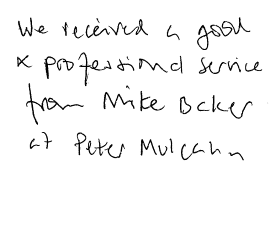 We received a good
& professional service
from Mike Baker
at Peter Mulcahy